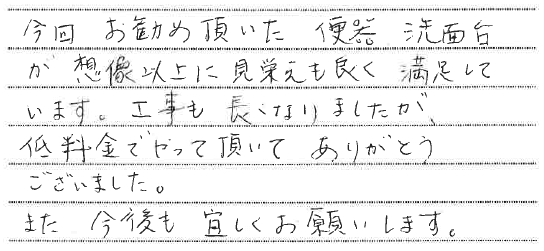 今回 お勧め頂いた 便器 洗面台
が 想像以上に 見栄えも良く 満足して
います。工事も 長くなりましたが、
低料金でやって頂いて ありがとう
ございました。
また 今後も 宜しくお願いします。